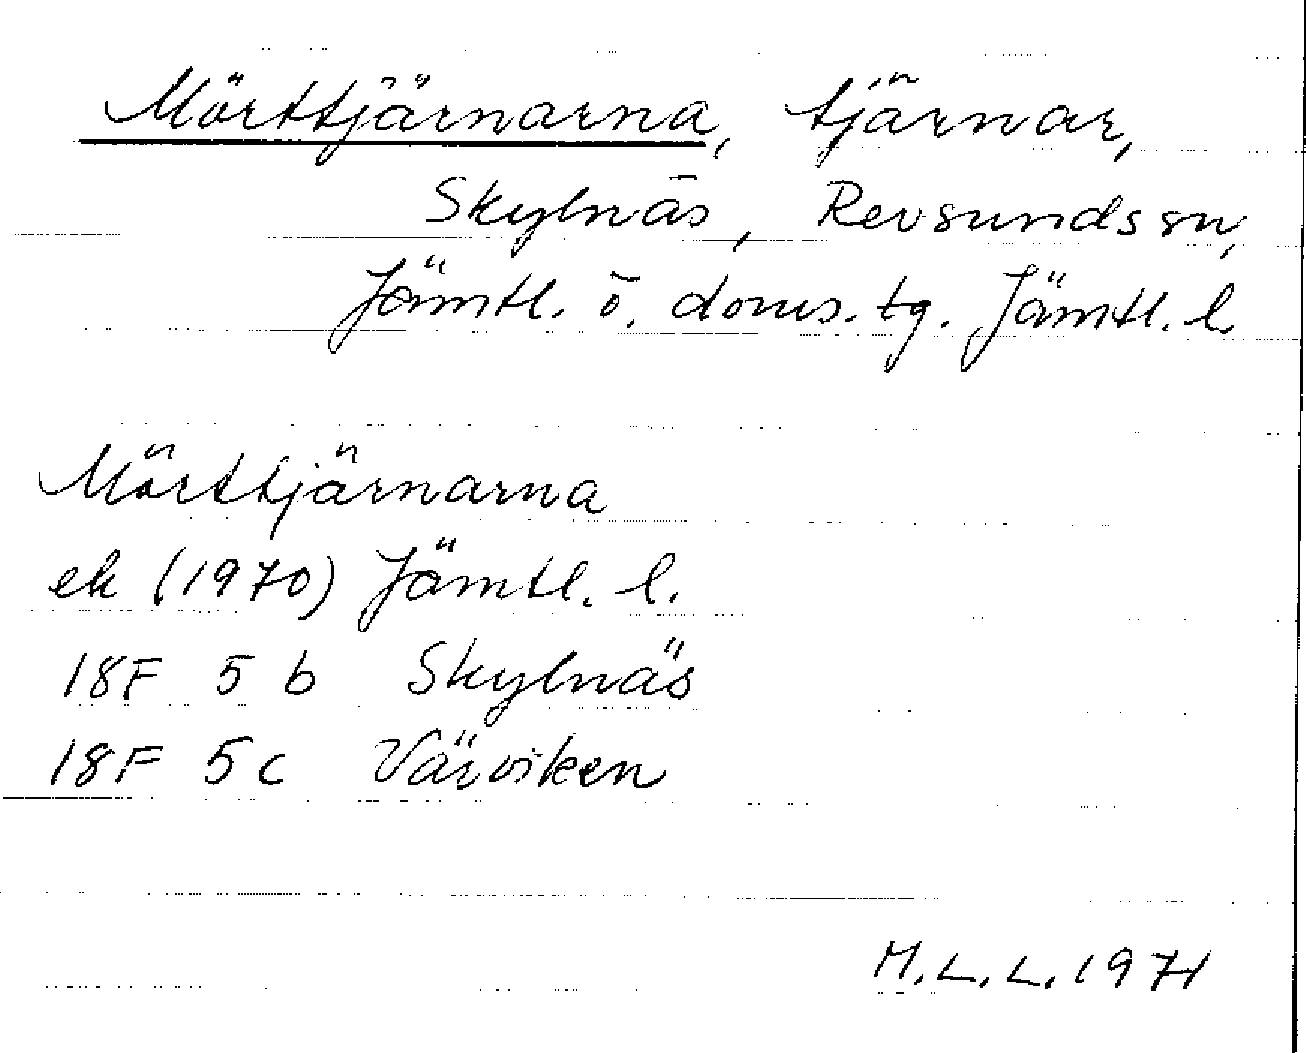 Mörttjärnarna, tjärnar,
Skylnäs, Revsunds sn,
Jämtl. ö. doms. tg. Jämtl. l.
Mörttjärnarna
ek (1970) Jämtl. l.
18F 5 b Skylnäs
18F 5 c Värviken
M.L.L. 1971